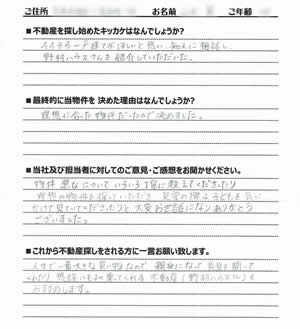 ご住所 お名前 ご年齢
■不動産を探し始めたキッカケはなんでしょうか?
そろそろ一戸建てがほしいと思い 知人に相談し、
野村ハウスさんを紹介していただいた。
■最終的に当物件を 決めた理由はなんでしょうか?
理想に合った物件だったので決めました。
■当社及び担当者に対してのご意見・ご感想をお聞かせください。
物件 について いろいろ丁寧に教えてくださったり
理想の物件を探していただき 見学の際は子どもを気に
かけて見ていてくださったりと大変お世話になりありがとう
ございました。
■これから不動産探しをされる方に一言お願い致します。
人生で一番大きな買い物なので 親身になって 話を聞いて
くれたり 想談にものって来てくれる 不動産(野村ハウスさん)を
おすすめします。